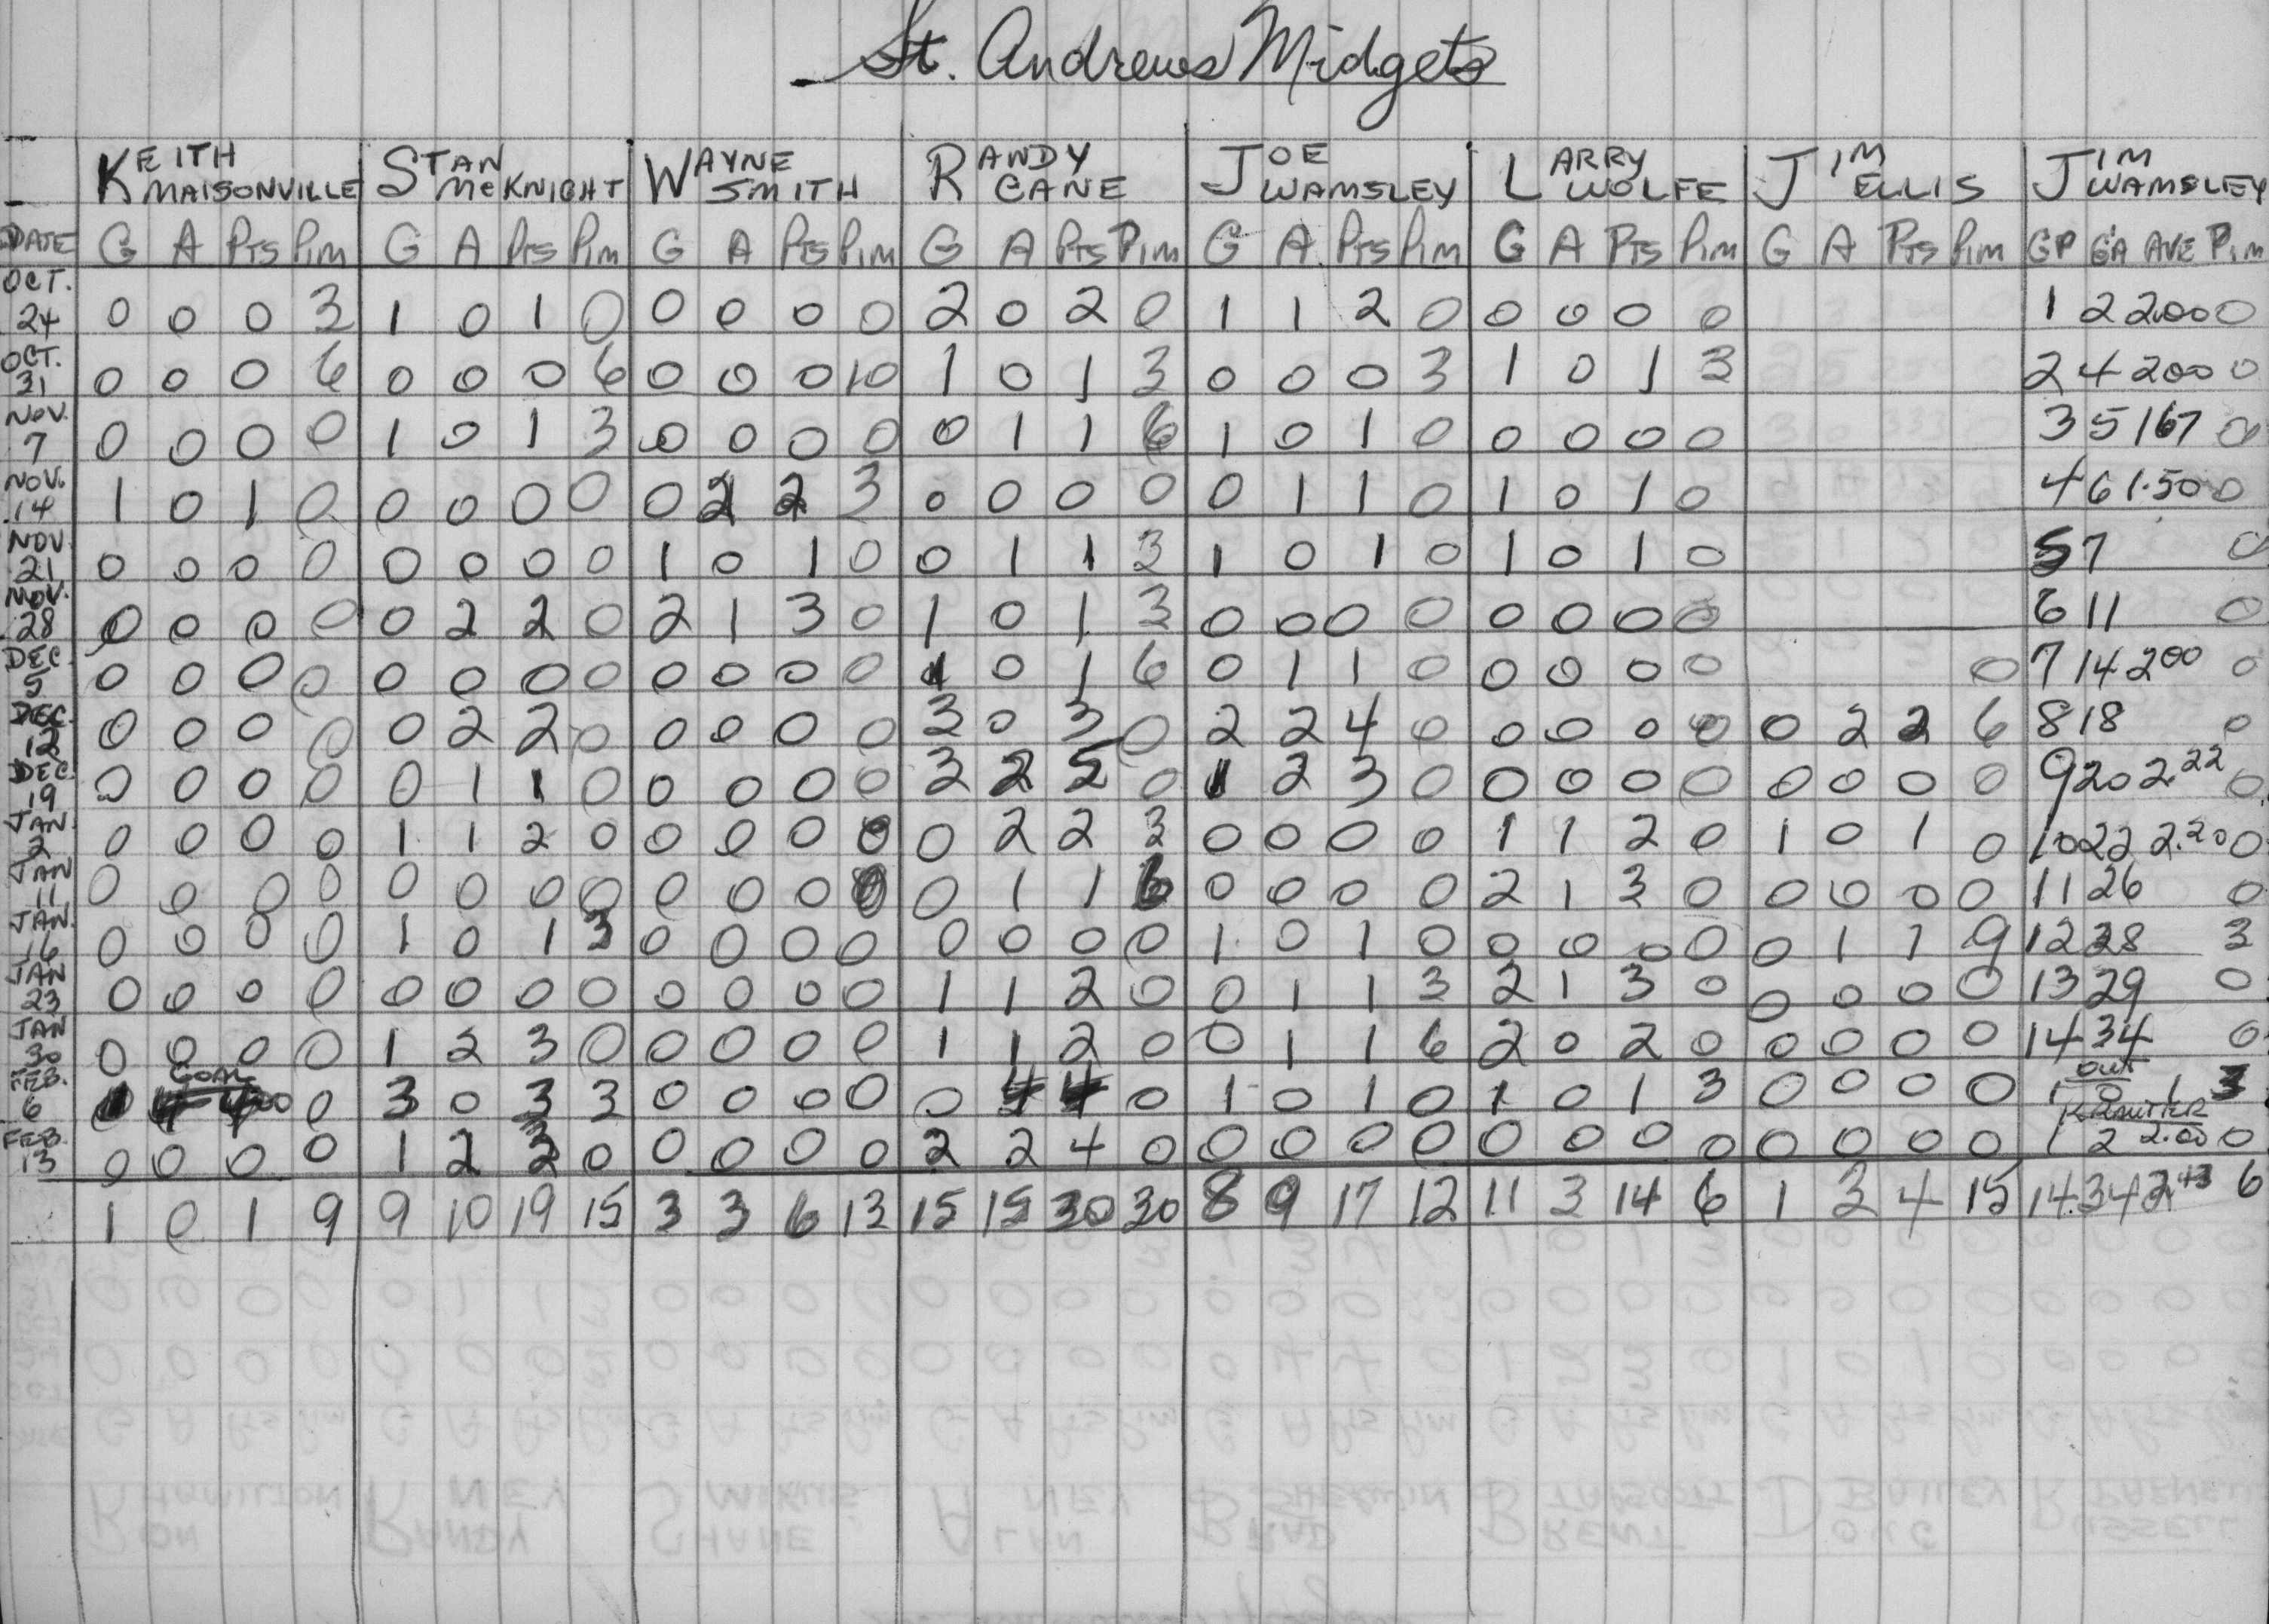 St. Andrews Midgets
KEITH MAISONVILLE STAN McKNIGHT WAYNE SMITH RANDY CANE JOE WAMSLEY LARRY WOLFE JIM ELLIS JIM WAMSLEY
DATE G A PTS PIM G A PTS PIM G A PTS PIM G A PTS PIM G A PTS PIM G A PTS PIM G A PTS PIM GP GA AVE PIM
OCT. 24 0 0 0 3 1 0 1 0 0 0 0 0 2 0 2 0 1 1 2 0 0 0 0 0 1 2 2.00 0
OCT. 31 0 0 0 6 0 0 0 6 0 0 0 10 1 0 1 3 0 0 0 3 1 0 1 3 2 4 200 0
NOV. 7 0 0 0 0 1 0 1 3 0 0 0 0 0 1 1 6 1 0 1 0 0 0 0 0 3 5 167 0
NOV. 14 1 0 1 0 0 0 0 0 0 2 2 3 0 0 0 0 0 1 1 0 1 0 1 0 4 6 1.50 0
NOV. 21 0 0 0 0 0 0 0 0 1 0 1 0 0 1 1 3 1 0 1 0 1 0 1 0 5 7 0
NOV. 28 0 0 0 0 0 2 2 0 2 1 3 0 1 0 1 3 0 0 0 0 0 0 0 0 6 11 0
DEC. 5 0 0 0 0 0 0 0 0 0 0 0 0 1 0 1 6 0 1 1 0 0 0 0 0 0 7 14 200 0
DEC. 12 0 0 0 0 0 2 2 0 0 0 0 0 3 0 3 0 2 2 4 0 0 0 0 0 0 2 2 6 8 18 0
DEC. 19 0 0 0 0 0 1 1 0 0 0 0 0 3 2 5 0 1 2 3 0 0 0 0 0 0 0 0 0 9 20 2.22 0
JAN. 2 0 0 0 0 1 1 2 0 0 0 0 0 0 2 2 3 0 0 0 0 1 1 2 0 1 0 1 0 10 22 2.20 0
JAN 11 0 0 0 0 0 0 0 0 0 0 0 0 0 1 1 6 0 0 0 0 2 1 3 0 0 0 0 0 11 26 0
JAN. 16 0 0 0 0 1 0 1 3 0 0 0 0 0 0 0 0 1 0 1 0 0 0 0 0 0 1 1 9 12 28 3
JAN 23 0 0 0 0 0 0 0 0 0 0 0 0 1 1 2 0 0 1 1 3 2 1 3 0 0 0 0 0 13 29 0
JAN 30 0 0 0 0 1 2 3 0 0 0 0 0 1 1 2 0 0 1 1 6 2 0 2 0 0 0 0 0 14 34 0
FEB. 6 GOAL 0 3 0 3 3 0 0 0 0 0 4 4 0 1 0 1 0 1 0 1 3 0 0 0 0 1 out 3
FEB. 13 0 0 0 0 1 2 3 0 0 0 0 0 2 2 4 0 0 0 0 0 0 0 0 0 0 0 0 0 1 2 2.00 0
1 0 1 9 9 10 19 15 3 3 6 13 15 15 30 30 8 9 17 12 11 3 14 6 1 3 4 15 14 34 2.43 6